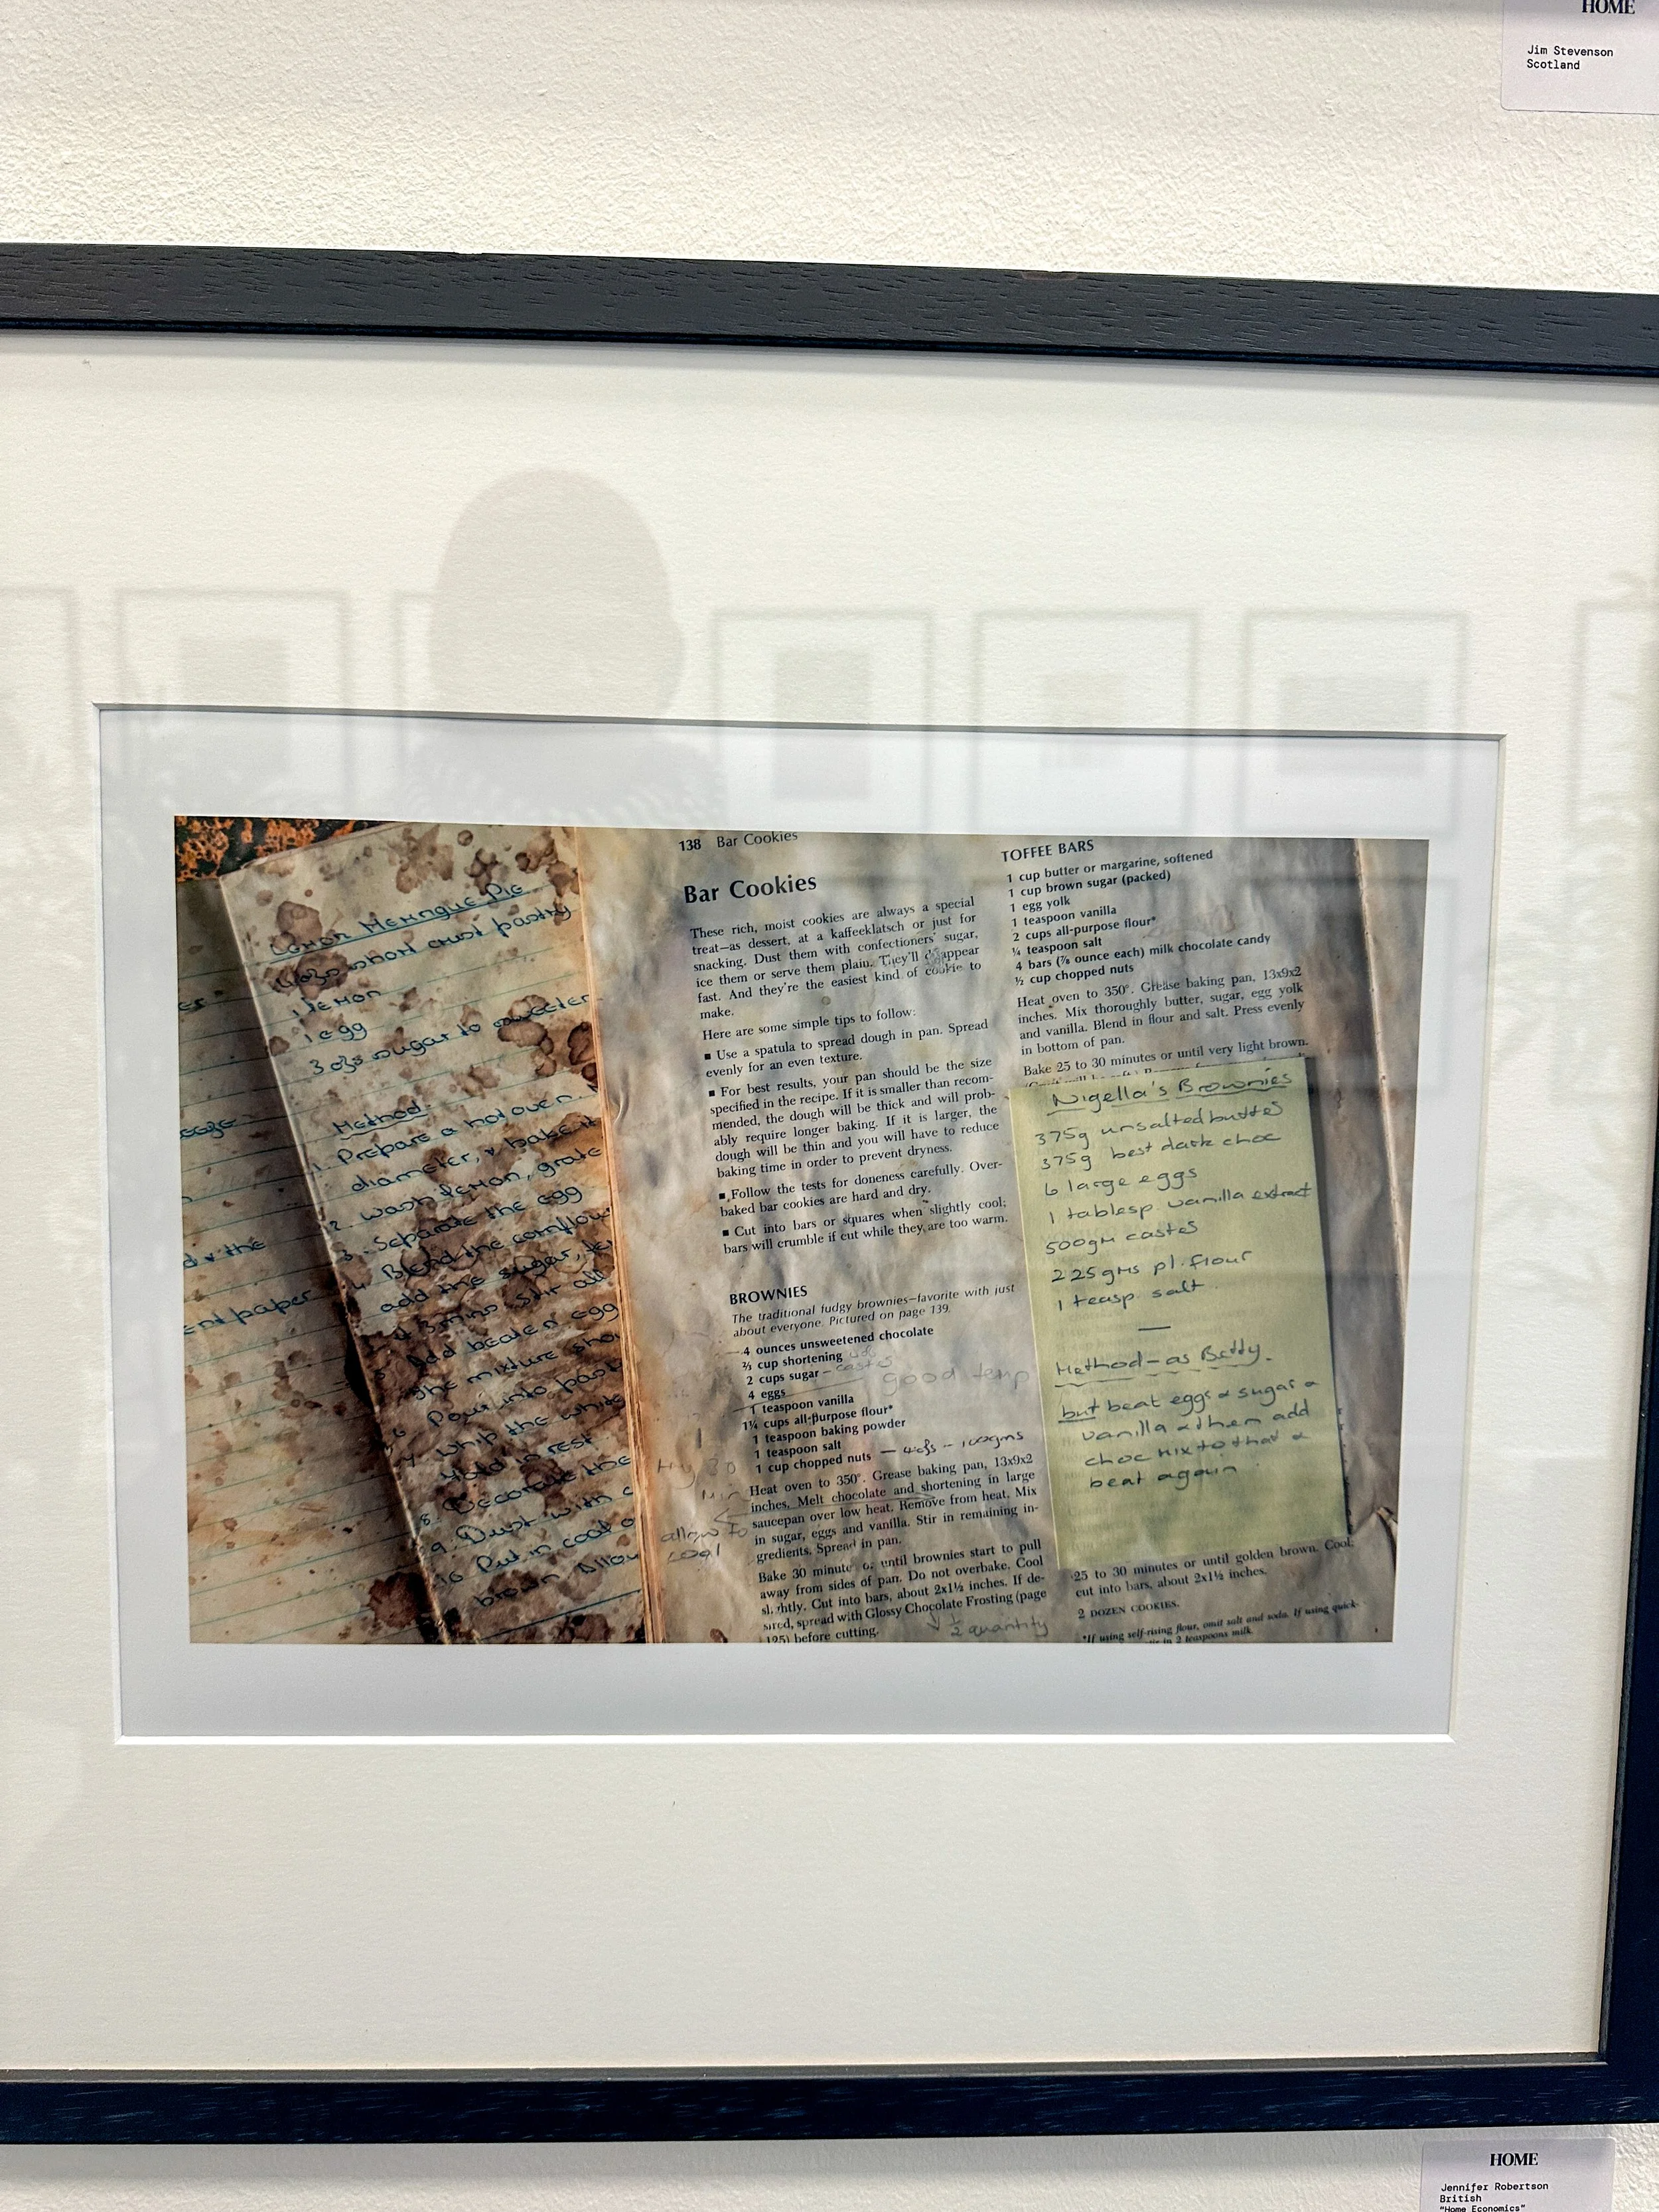 HOME
Jim Stevenson
Scotland
Lemon Meringue Pie
4ozs short crust pastry
1 lemon
1 egg
3 ozs sugar to sweeten
Method.
1. Prepare a hot oven.
diameter, & bake it
2. wash lemon, grate
3. Separate the egg
4. Blend the cornflour
add the sugar,
3 mins. Stir all
5 Add beaten egg
The mixture
6 Pour into
7 Whip the white
fold in rest.
8. Decorate the
9. Dust with
10 Put in cool
brown. Allow
d & the
ent paper
138 Bar Cookies
Bar Cookies
These rich, moist cookies are always a special
treat—as dessert, at a kaffeeklatsch or just for
snacking. Dust them with confectioners' sugar,
ice them or serve them plain. They'll disappear
fast. And they're the easiest kind of cookie to
make.
Here are some simple tips to follow:
■ Use a spatula to spread dough in pan. Spread
evenly for an even texture.
■ For best results, your pan should be the size
specified in the recipe. If it is smaller than recom-
mended, the dough will be thick and will prob-
ably require longer baking. If it is larger, the
dough will be thin and you will have to reduce
baking time in order to prevent dryness.
■ Follow the tests for doneness carefully. Over-
baked bar cookies are hard and dry.
■ Cut into bars or squares when slightly cool;
bars will crumble if cut while they are too warm.
BROWNIES
The traditional fudgy brownies—favorite with just
about everyone. Pictured on page 139.
4 ounces unsweetened chocolate
⅔ cup shortening
2 cups sugar – caster
4 eggs
good temp
1 teaspoon vanilla
1¼ cups all-purpose flour*
1 teaspoon baking powder
1 teaspoon salt
1 cup chopped nuts – 4ozs – 100gms
Heat oven to 350°. Grease baking pan, 13x9x2
inches. Melt chocolate and shortening in large
saucepan over low heat. Remove from heat. Mix
in sugar, eggs and vanilla. Stir in remaining in-
gredients. Spread in pan.
allow to
cool
Bake 30 minutes or until brownies start to pull
away from sides of pan. Do not overbake. Cool
slightly. Cut into bars, about 2x1½ inches. If de-
sired, spread with Glossy Chocolate Frosting (page
125) before cutting.
½ quantity
TOFFEE BARS
1 cup butter or margarine, softened
1 cup brown sugar (packed)
1 egg yolk
1 teaspoon vanilla
2 cups all-purpose flour*
¼ teaspoon salt
4 bars (⅞ ounce each) milk chocolate candy
½ cup chopped nuts
Heat oven to 350°. Grease baking pan, 13x9x2
inches. Mix thoroughly butter, sugar, egg yolk
and vanilla. Blend in flour and salt. Press evenly
in bottom of pan.
Bake 25 to 30 minutes or until very light brown.
Nigella's Brownies
375g unsalted butter
375g best dark choc
6 large eggs
1 tablesp. vanilla extract
500gm caster
225gms pl. flour
1 teasp. salt.
Method – as Betty.
but beat eggs & sugar &
vanilla & then add
choc mix to that &
beat again
25 to 30 minutes or until golden brown. Cool;
cut into bars, about 2x1½ inches.
2 DOZEN COOKIES.
*If using self-rising flour, omit salt and soda. If using quick-
in 2 teaspoons milk.
HOME
Jennifer Robertson
British
"Home Economics"